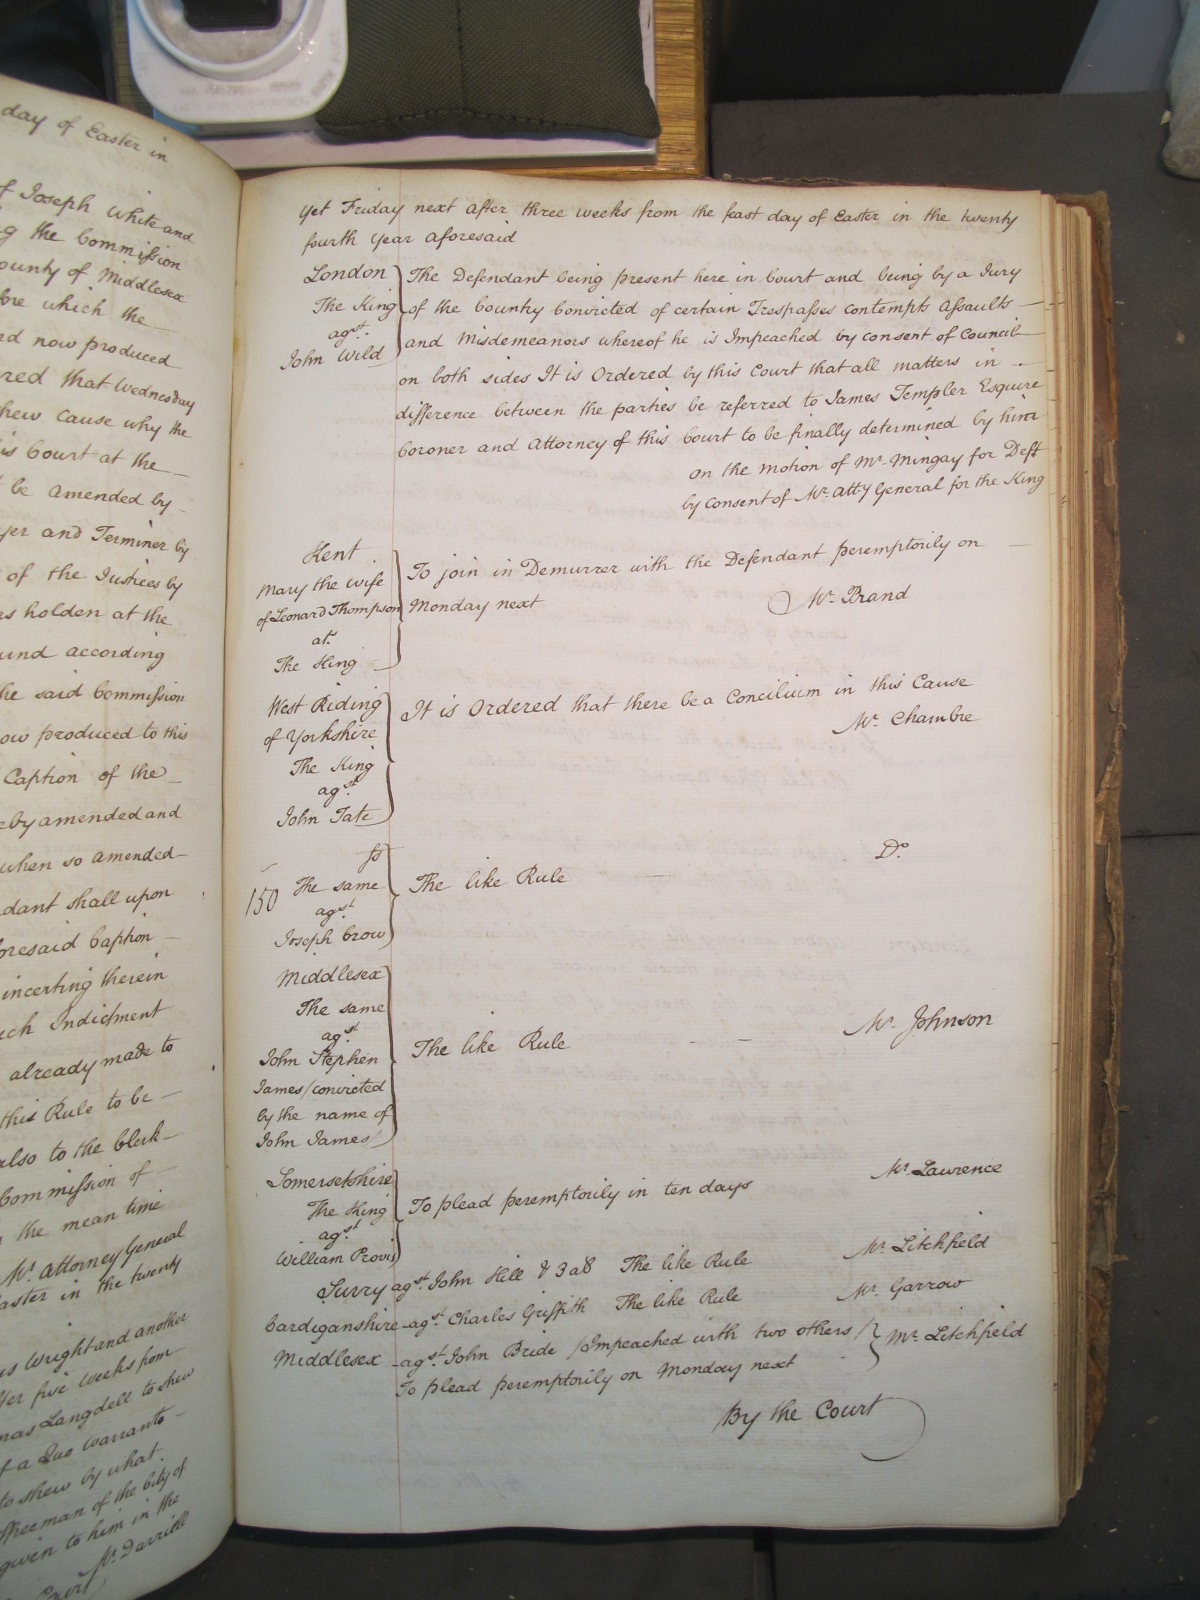 day of Easter in
f Joseph white and
g the Commission
ounty of Middlesex
fore which the
nd now produced
red that Wednesday
hew cause why the
is Court at the
t be amended by
yer and Terminer by
of the Justices by
as holden at the
und according
he said Commission
ow produced to this
Caption of the
eby amended and
when so amended
dant shall upon
foresaid Caption
incerting therein
uch Indictment
already made to
this Rule to be
also to the Clerk
Commission of
the mean time
Mr. Attorney General
aster in the twenty
us Wright and another
fter five weeks from
mas Langdell to shew
f a Quo Warranto
to shew by what
ffreeman of the City of
given to him in the
Mr. Darrell
Court
Yet Friday next after three weeks from the feast day of Easter in the twenty
fourth Year aforesaid
London
The King
agst.
John Wild
The Defendant being present here in Court and being by a Jury
of the Country Convicted of certain Trespasses contempts Assaults
and Misdemeanors whereof he is Impeached by consent of Council
on both sides It is Ordered by this Court that all matters in
difference between the parties be referred to James Templer Esquire
Coroner and Attorney of this Court to be finally determined by him
on the motion of Mr. Mingay for Deft
by consent of Mr. Atty General for the King
Kent
Mary the wife
of Leonard Thompson
at.
The King
To join in Demurrer with the Defendant peremptorily on
Monday next Mr. Brand
West Riding
of Yorkshire
The King
agst.
John Tate
It is Ordered that there be a Concilium in this Cause
Mr. Chambre
ss
150 The same
agst.
Joseph Crow
The like Rule Do.
Middlesex
The same
agst.
John Stephen
James/convicted
by the name of
John James/
The like Rule Mr. Johnson
Somersetshire
The King
agst.
William Provis
To plead peremptorily in ten days Mr. Lawrence
Surry agst. John Hill & 3 as The like Rule Mr. Litchfield
Cardiganshire agst. Charles Griffith The like Rule Mr. Garrow
Middlesex agst. John Bride /Impeached with two others/ Mr. Litchfield
To plead peremptorily on Monday next
By the Court